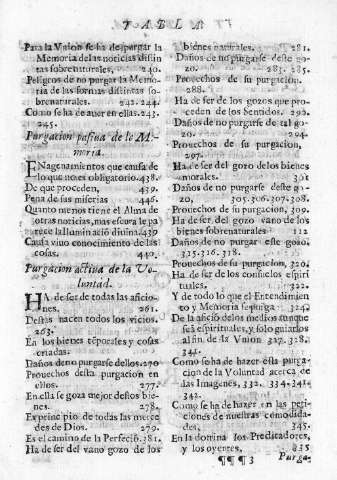 TABLA
Para la Vnion se ha de purgar la
Memoria de las noticias distin
tas sobrenaturales, 240.
Peligros de no purgar la Memo-
ria de las formas distintas so-
brenaturales. 242. 244.
Como se ha de auer en ellas. 243.
245.
Purgacion pasiua de la Me-
moria.
ENagenamientos que causa de
lo que no es obligatorio. 438.
De que proceden, 439.
Pena de sus miserias 446.
Quanto menos tiene el Alma de
otras noticias, mas escura le pa
rece la Iluminació diuina. 439
Causa viuo conocimiento de las
cosas, 440.
Purgacion actiua de la Vo-
luntad.
HA de ser de todas las aficio-
nes, 261.
Destas nacen todos los vicios.
263.
En los bienes téporales, y cosas
criadas.
Daños de no purgarse dellos. 270
Prouechos desta purgacion en
ellos. 277.
En ella se goza mejor destos bie-
nes. 278.
Es principio de todas las merce
des de Dios. 279.
Es el camino de la Perfeció. 381.
Ha de ser del vano gozo de los
bienes naturales. 281.
Daños de no purgarse deste go-
zo. 283. 285.
Prouechos de su purgacion.
288.
Ha de ser de los gozos que pro-
ceden de los Sentidos. 292.
Daños de no purgarse de tal go-
zo. 294.
Prouechos de su purgacion,
297.
Ha de ser del gozo de los bienes
morales. 301
Daños de no purgarse deste go-
zo, 305. 306. 307. 308.
Prouechos de su purgacion, 309.
Ha de ser del gozo vano de los
bienes sobrenaturales 312
Daños de no purgar este gozo,
315. 316. 318.
Prouechos de su purgacion, 320.
Ha de ser de los consuelos espiri
tuales. 322.
Y de todo lo que el Entendimien
to y Memoria se purga 324.
De la afició de los medios aunque
seá espirituales, y solo guiarlos
al fin de la Vnion 327. 328.
334.
Como se ha de hazer esta purga-
cion de la Voluntad acerca de
las Imagenes, 332. 334. 341.
342.
Como se ha de hazer en las peti-
ciones de nuestras comodida-
des, 345.
En la dotrina los Predicadores,
y los oyentes, 835
¶¶¶ 3 Purga-